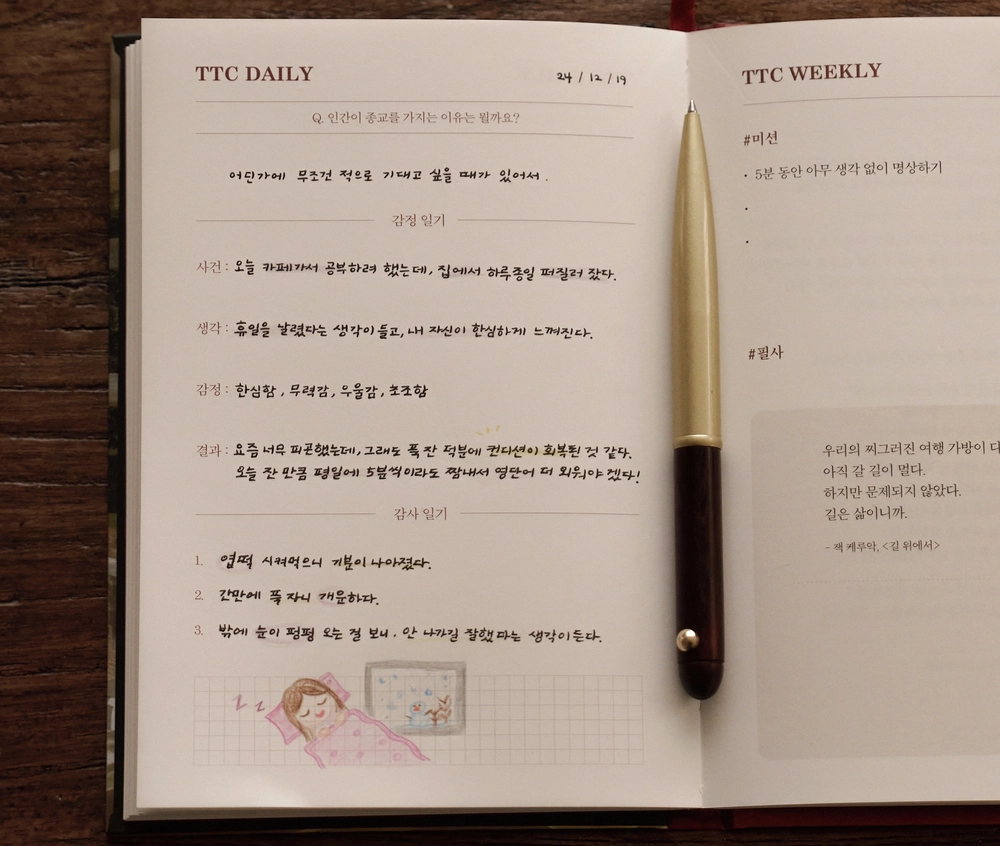 TTC DAILY
24 / 12 / 19
Q. 인간이 종교를 가지는 이유는 뭘까요?
어딘가에 무조건 적으로 기대고 싶을 때가 있어서.
감정 일기
사건 : 오늘 카페가서 공부하려 했는데, 집에서 하루종일 퍼질러 잤다.
생각 : 휴일을 날렸다는 생각이 들고, 내 자신이 한심하게 느껴진다.
감정 : 한심함, 무력감, 우울감, 초조함
결과 : 요즘 너무 피곤했는데, 그래도 푹 잔 덕분에 컨디션이 회복된 것 같다.
오늘 잔 만큼 평일에 5분씩이라도 짬내서 영단어 더 외워야 겠다!
감사 일기
1. 엽떡 시켜먹으니 기분이 나아졌다.
2. 간만에 푹 자니 개운하다.
3. 밖에 눈이 펑펑 오는 걸 보니, 안 나가길 잘했다는 생각이 든다.
z z
TTC WEEKLY
#미션
· 5분 동안 아무 생각 없이 명상하기
·
·
#필사
우리의 찌그러진 여행 가방이 다
아직 갈 길이 멀다.
하지만 문제되지 않았다.
길은 삶이니까.
- 잭 케루악, <길 위에서>